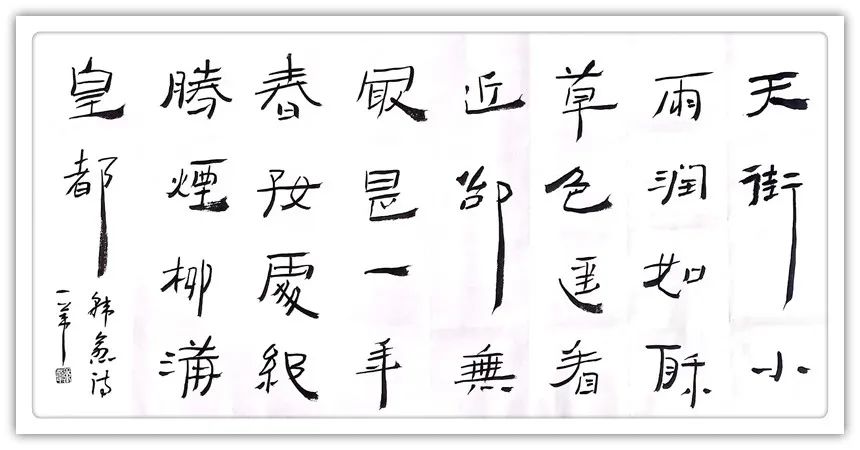 天街小
雨润如酥
草色遥看
近卻無
最是一年
春好處絕
勝煙柳滿
皇都
韩愈诗